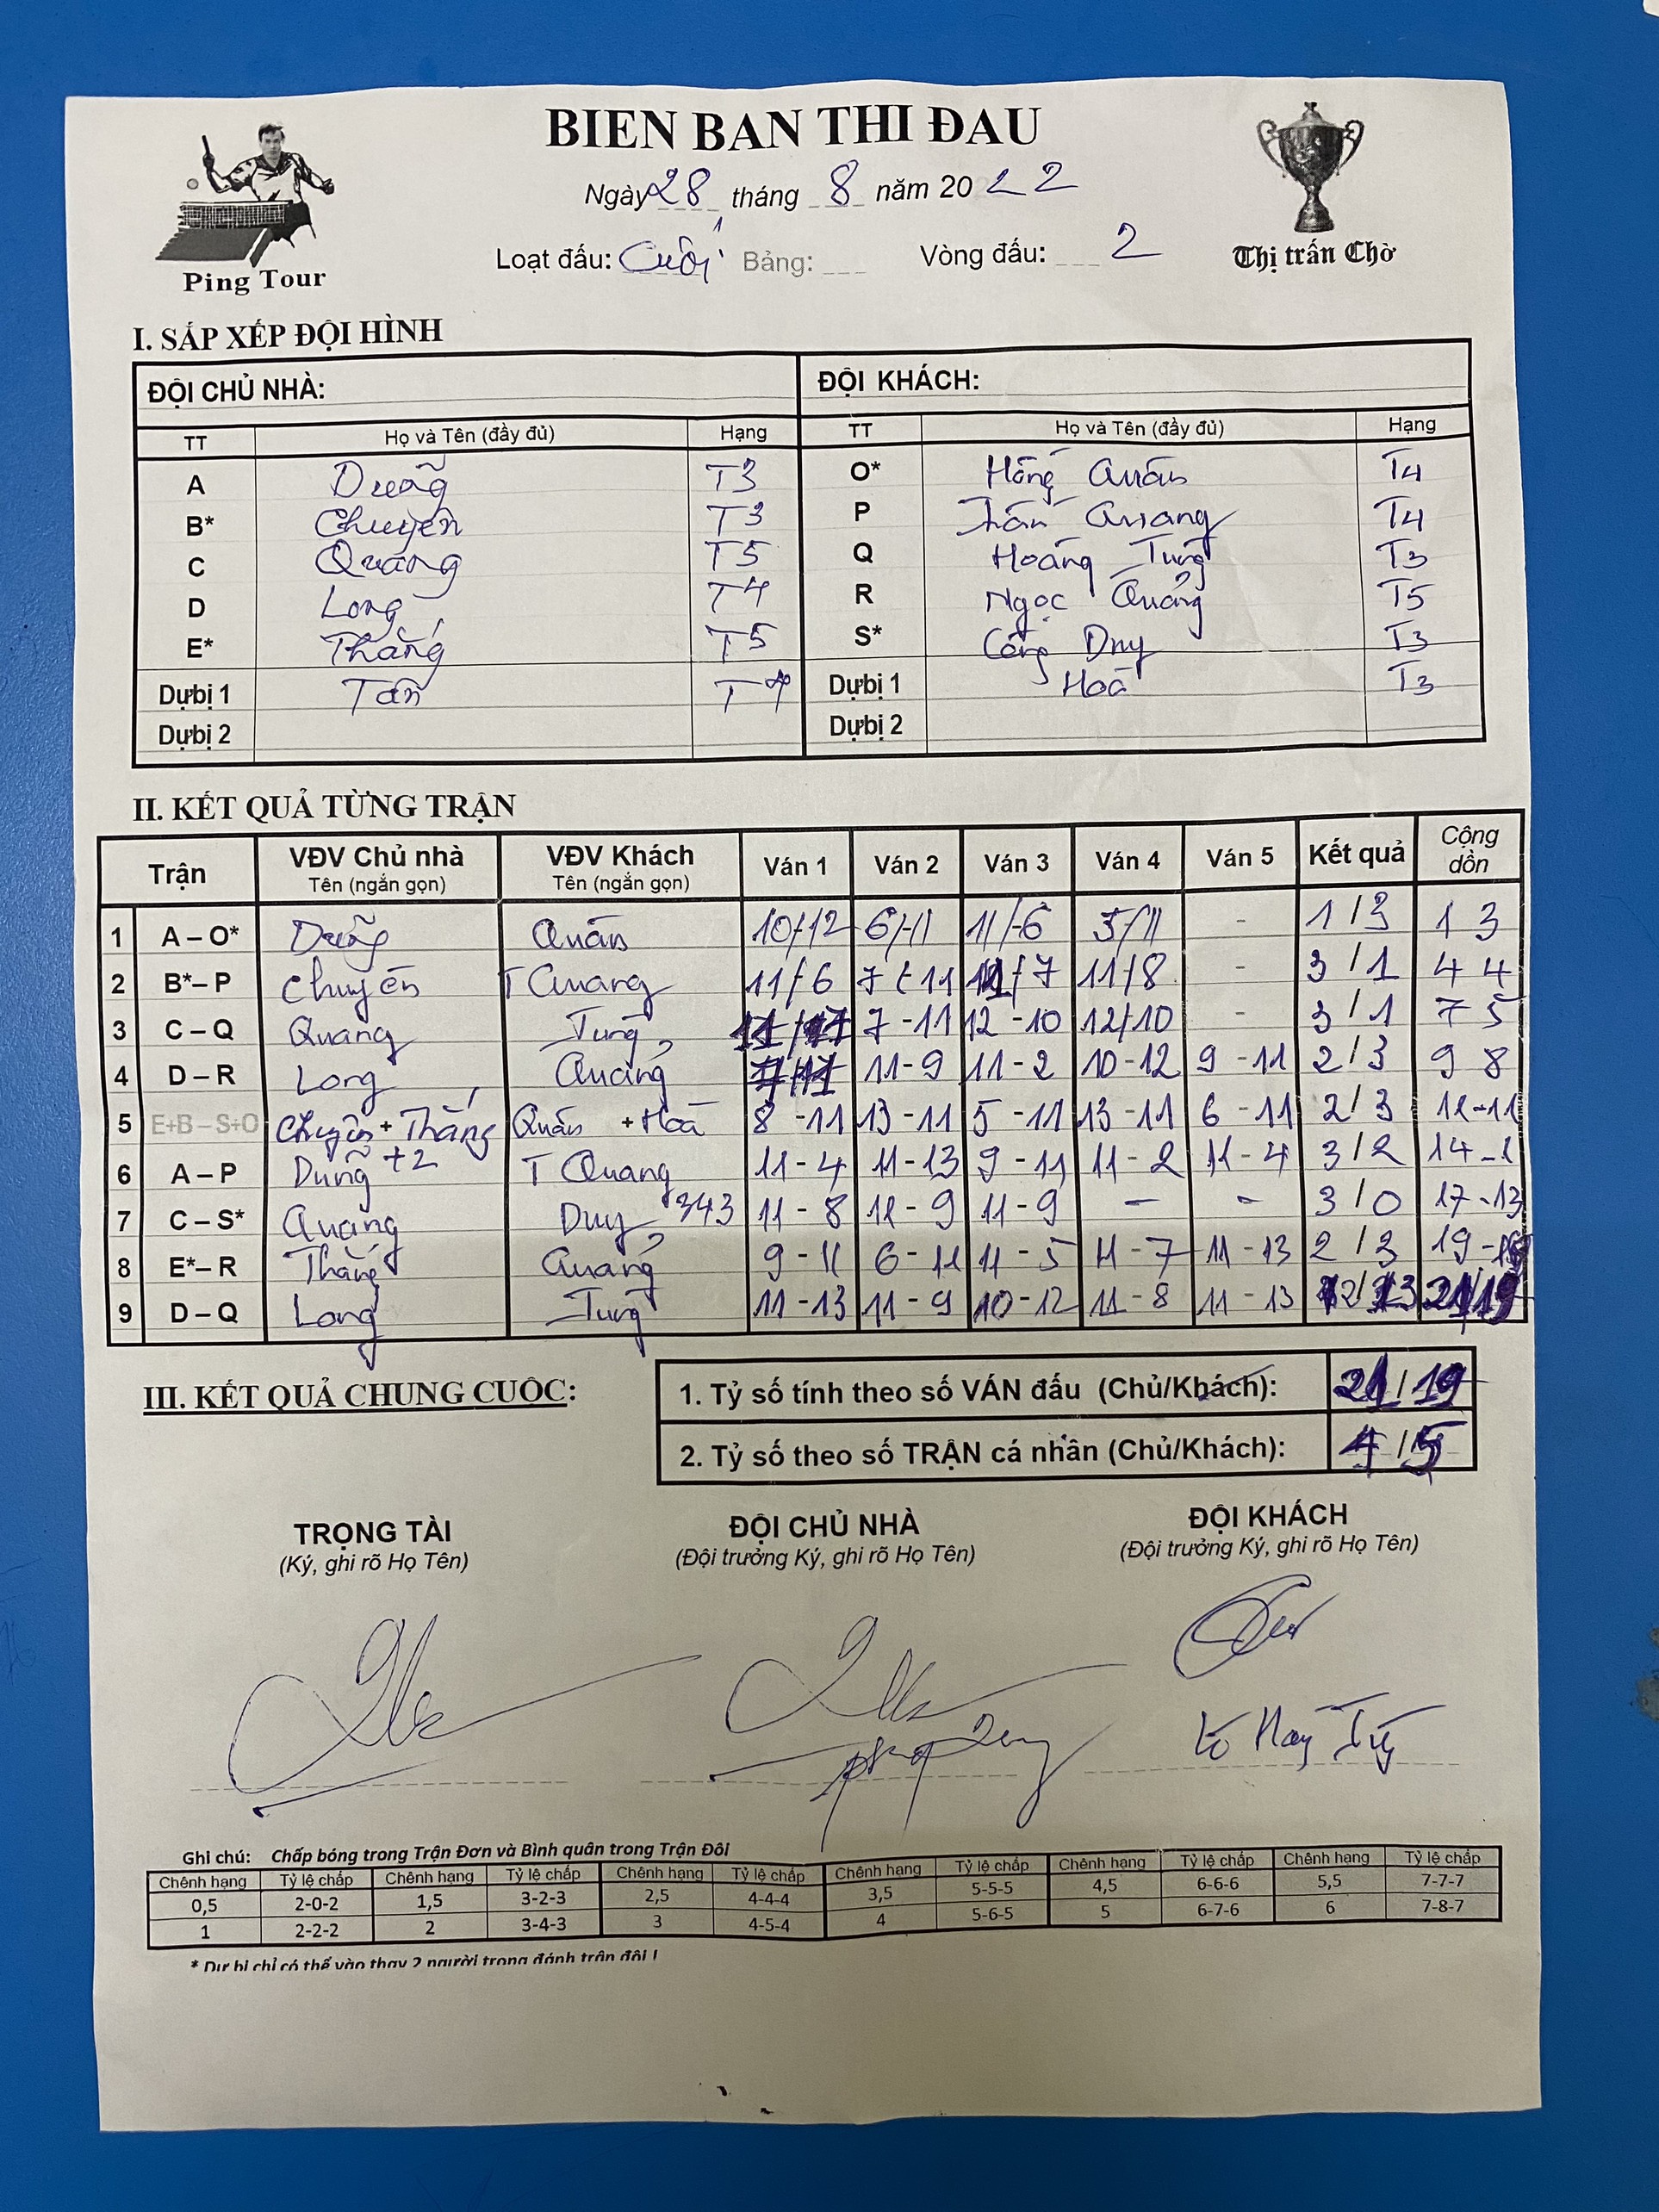 BIEN BAN THI ĐAU
Ngày 28 tháng 8 năm 2022
Loạt đấu: Cuối Bảng: ___ Vòng đấu: 2
Ping Tour
Thị trấn Chờ
I. SẮP XẾP ĐỘI HÌNH
ĐỘI CHỦ NHÀ: ĐỘI KHÁCH:
TT Họ và Tên (đầy đủ) Hạng TT Họ và Tên (đầy đủ) Hạng
A Dũng T3 O* Hồng Quân T4
B* Chuyên T3 P Trần Quang T4
C Quang T5 Q Hoàng Tùng T3
D Long T4 R Ngọc Quảng T5
E* Thắng T5 S* Công Duy T3
Dựbị 1 Tấn T4 Dựbị 1 Hoà T3
Dựbị 2 Dựbị 2
II. KẾT QUẢ TỪNG TRẬN
Trận VĐV Chủ nhà Tên (ngắn gọn) VĐV Khách Tên (ngắn gọn) Ván 1 Ván 2 Ván 3 Ván 4 Ván 5 Kết quả Cộng dồn
1 A – O* Dũng Quân 10/12 6/11 11/6 5/11 - 1/3 1 3
2 B*– P Chuyên T Quang 11/6 7/11 /7 11/8 - 3/1 4 4
3 C – Q Quang Tùng 7-11 12-10 12/10 - 3/1 7 5
4 D – R Long Quảng 11-9 11-2 10-12 9-11 2/3 9 8
5 E+B – S+O Chuyên + Thắng Quân + Hoà 8-11 13-11 5-11 13-11 6-11 2/3 11-11
6 A – P Dũng +2 T Quang 11-4 11-13 9-11 11-2 11-4 3/2 14-1
7 C – S* Quang Duy 343 11-8 11-9 11-9 - - 3/0 17-13
8 E*– R Thắng Quảng 9-11 6-11 11-5 11-7 11-13 2/3 19-
9 D – Q Long Tùng 11-13 11-9 10-12 11-8 11-13 2/3 21/19
III. KẾT QUẢ CHUNG CUÔC:
1. Tỷ số tính theo số VÁN đấu (Chủ/Khách): 21/19
2. Tỷ số theo số TRẬN cá nhân (Chủ/Khách): 4/5
TRỌNG TÀI ĐỘI CHỦ NHÀ ĐỘI KHÁCH
(Ký, ghi rõ Họ Tên) (Đội trưởng Ký, ghi rõ Họ Tên) (Đội trưởng Ký, ghi rõ Họ Tên)
Ghi chú: Chấp bóng trong Trận Đơn và Bình quân trong Trận Đôi
Chênh hạng Tỷ lệ chấp Chênh hạng Tỷ lệ chấp Chênh hạng Tỷ lệ chấp Chênh hạng Tỷ lệ chấp Chênh hạng Tỷ lệ chấp Chênh hạng Tỷ lệ chấp
0,5 2-0-2 1,5 3-2-3 2,5 4-4-4 3,5 5-5-5 4,5 6-6-6 5,5 7-7-7
1 2-2-2 2 3-4-3 3 4-5-4 4 5-6-5 5 6-7-6 6 7-8-7
* Dự bị chỉ có thể vào thay 2 người trong đánh trận đôi !